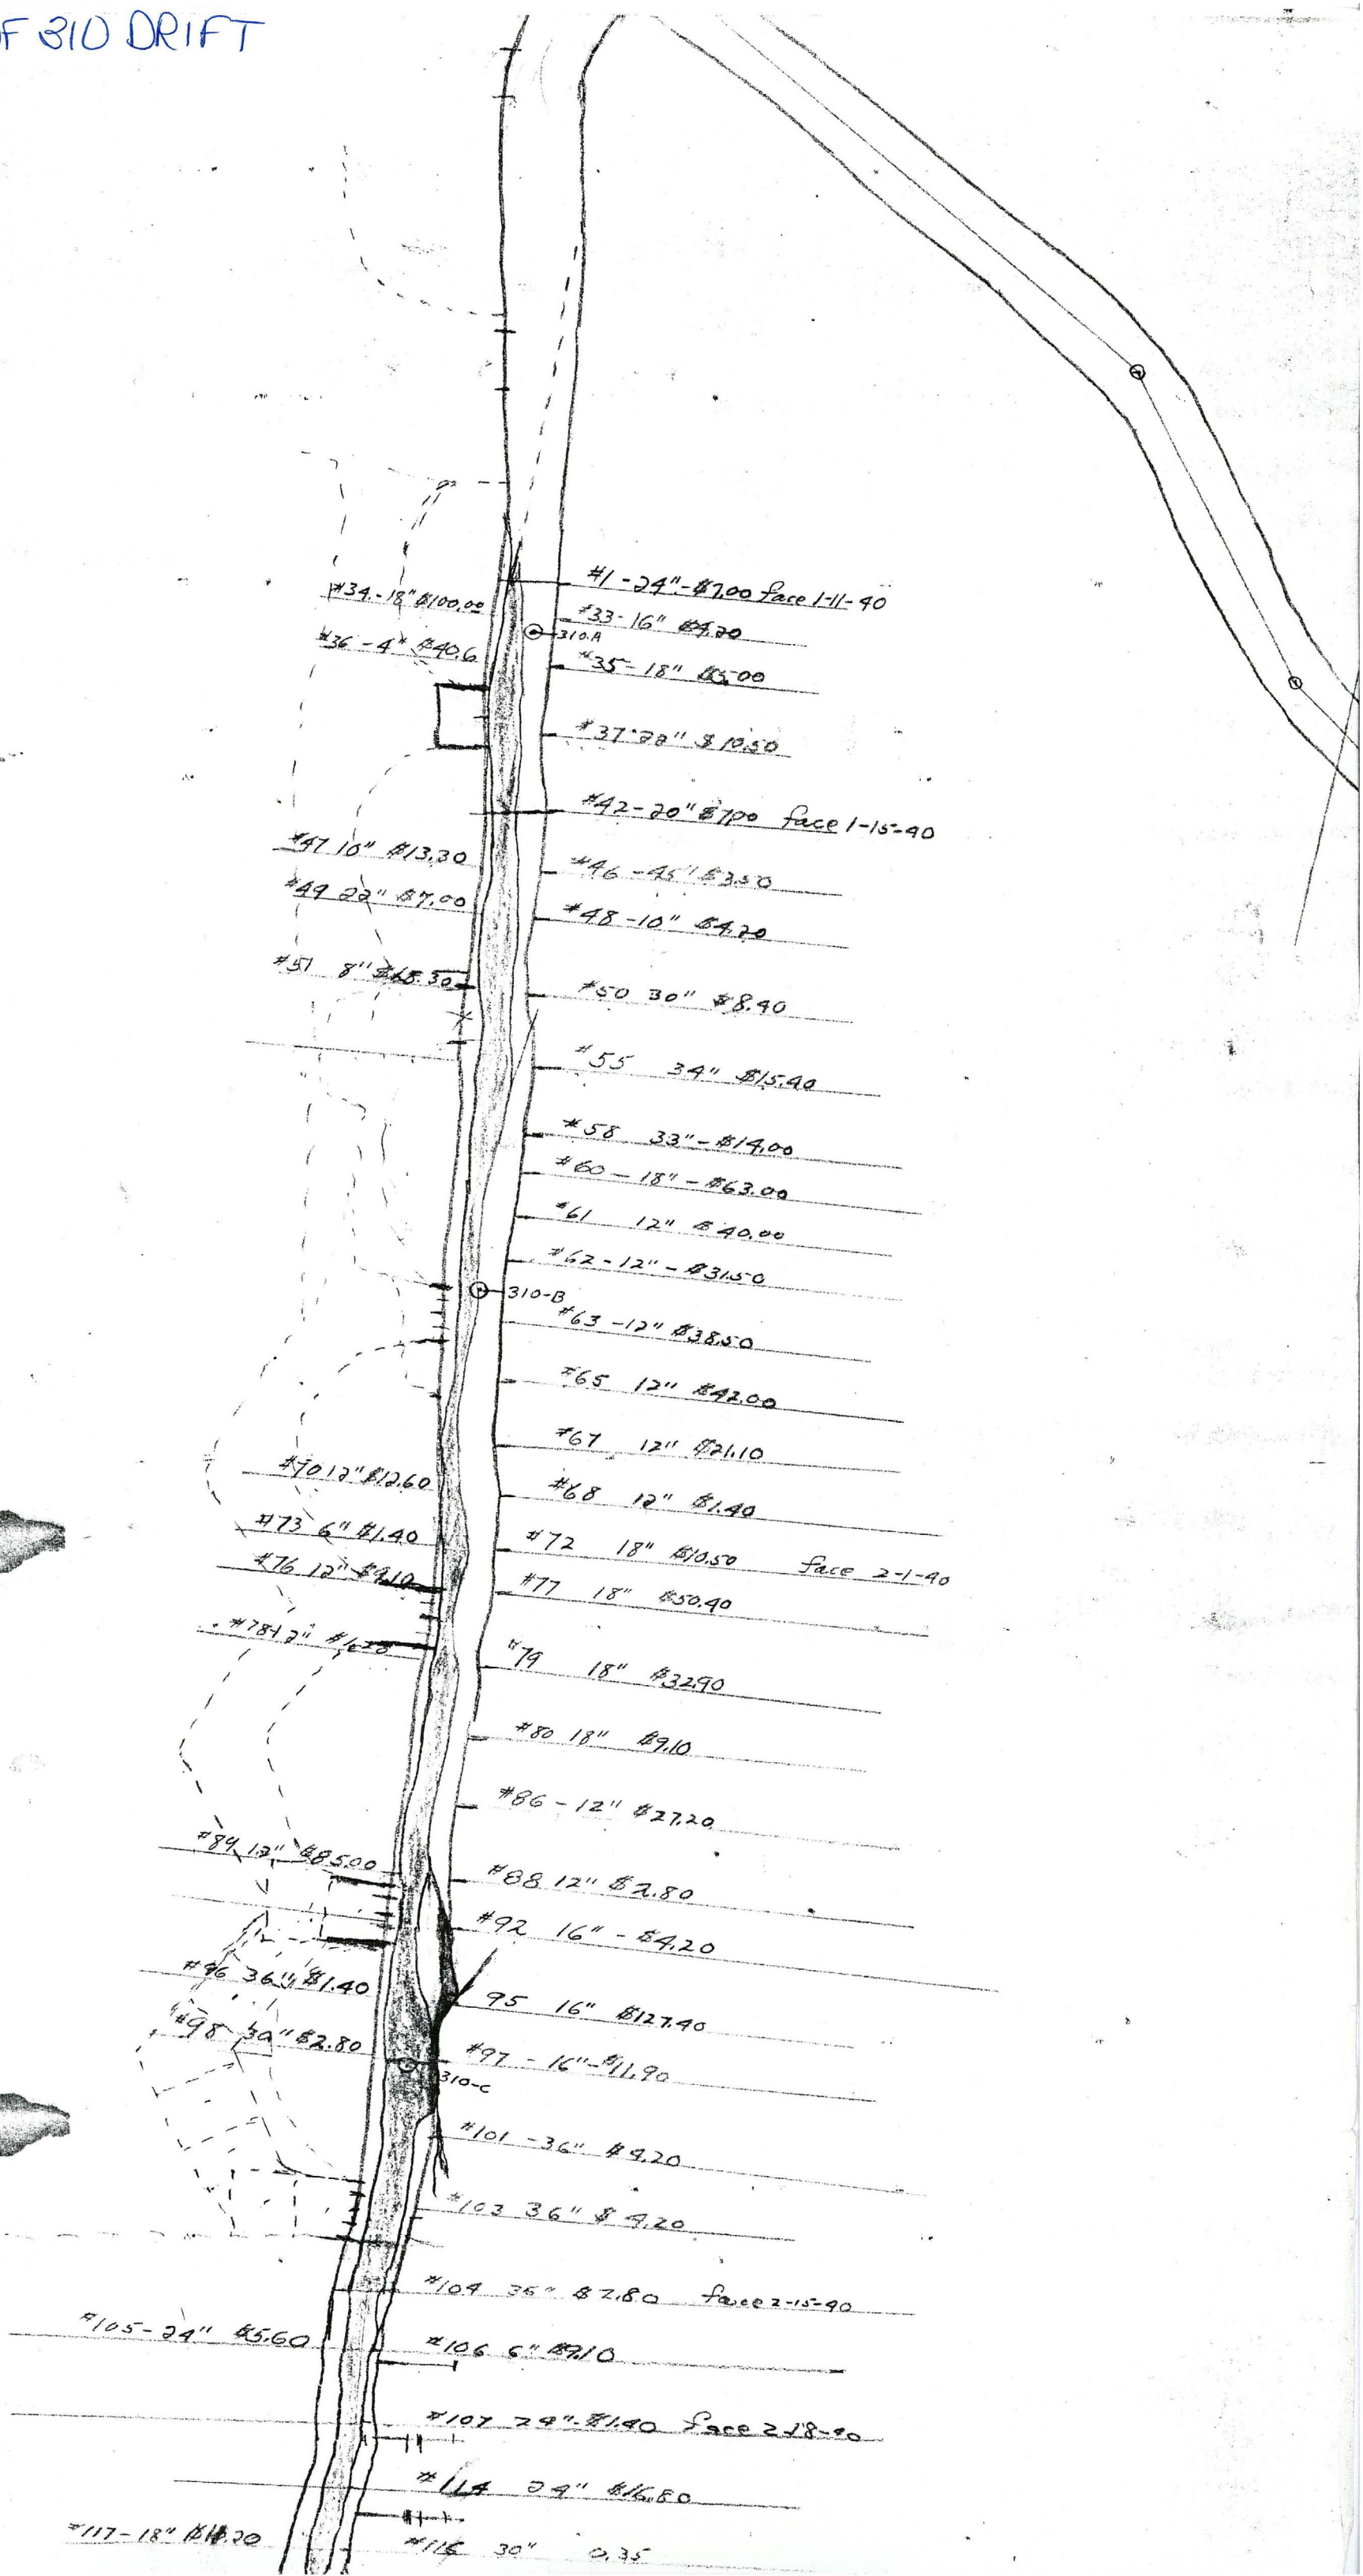 F 310 DRIFT
#1-24"-$7.00 face 1-11-40
#34-18" $100.00
#33-16" $4.20
310A
#36-4" $40.6
#35-18" $5.00
#37-22" $10.50
#42-20" $7.00 face 1-15-40
#47 10" $13.30
#46-45" $3.50
#49 22" $7.00
#48-10" $4.20
#51 8" $68.30
#50 30" $8.40
#55 34" $15.40
#58 33"-$14.00
#60-18"-$63.00
#61 12" $40.00
#62-12"-$31.50
310-B
#63-12" $38.50
#65 12" $42.00
#67 12" $21.10
#70 12" $12.60
#68 12" $1.40
#73 6" $1.40
#72 18" $10.50 face 2-1-40
#76 12" $9.10
#77 18" $50.40
#78 12"
#79 18" $32.90
#80 18" $9.10
#86-12" $27.20
#84 12" $85.00
#88 12" $2.80
#92 16"-$4.20
#96 36" $1.40
95 16" $127.40
#98 30" $2.80
#97-16"-$11.90
310-C
#101-36" $4.20
#103 36" $4.20
#104 36" $2.80 face 2-15-40
#105-24" $5.60
#106 6" $9.10
#107 24"-$1.40 face 2-18-40
#114 24" $16.80
#117-18"
30" 0.35